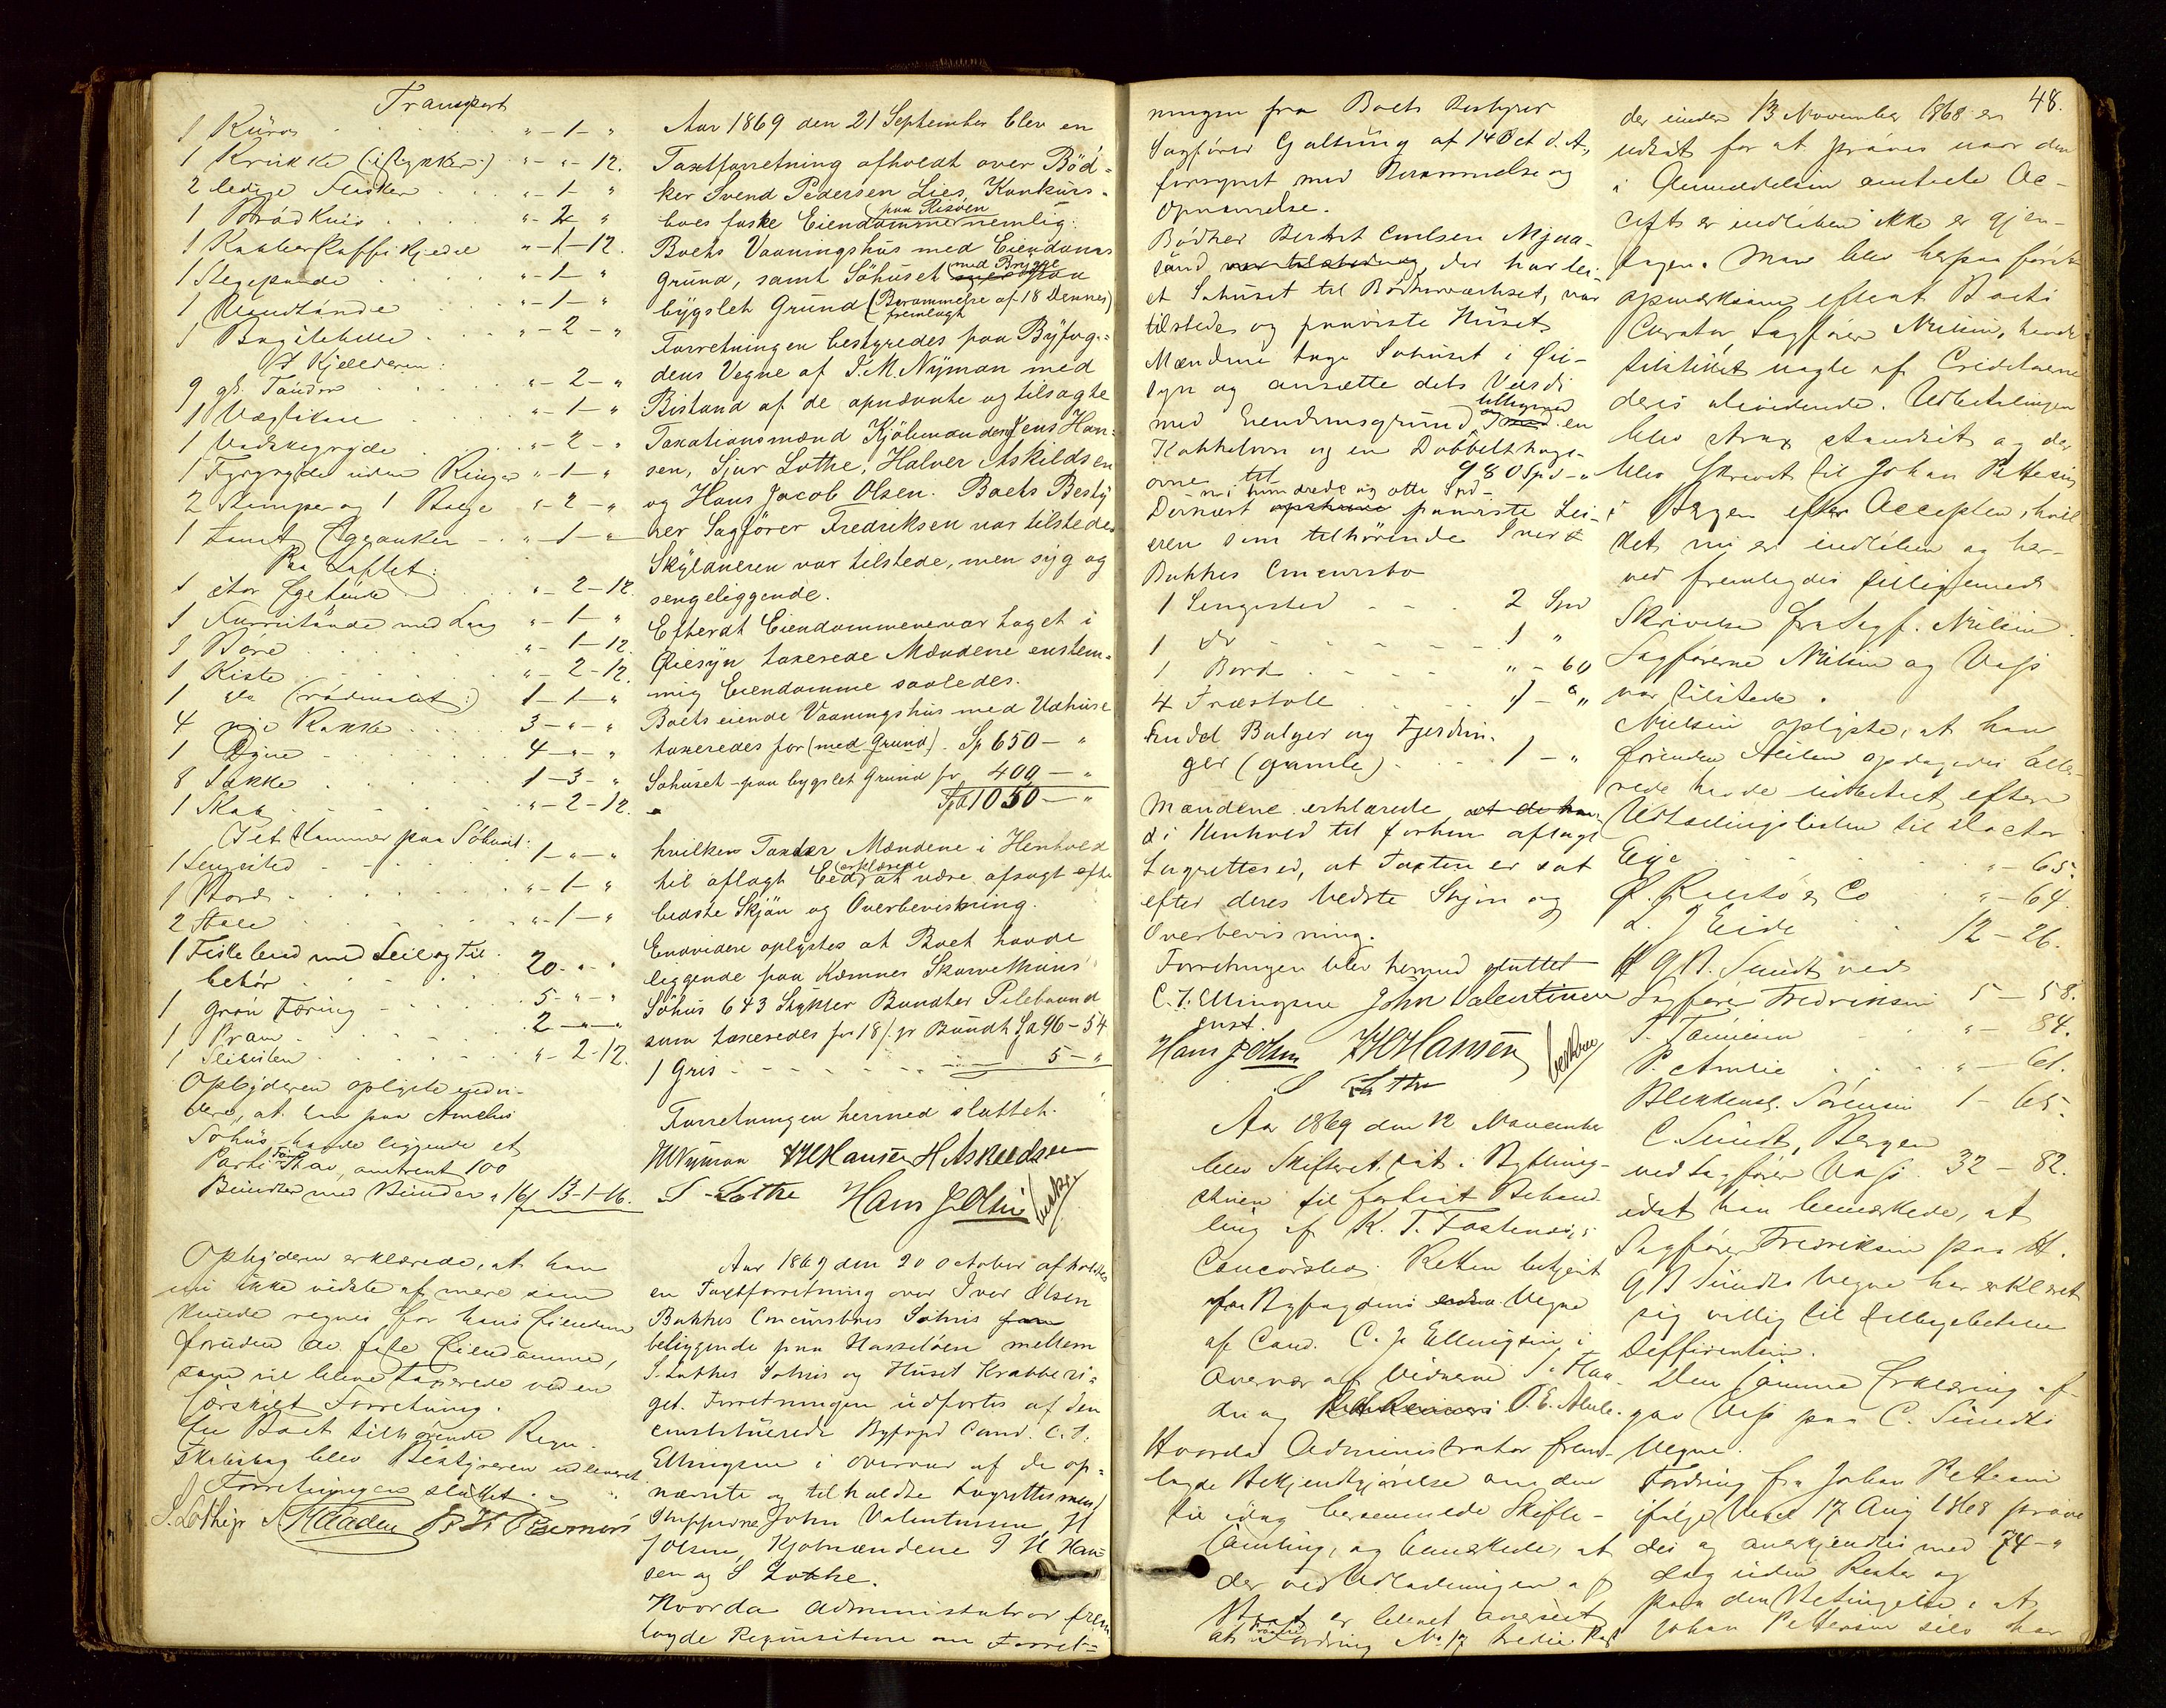 Transport
1 Kürv " - 1 - "
1 Krukke (istykker) " - " - 12.
2 ledige Flasker " - 1 - "
1 Brödkniv " - 2 "
1 Kobber Kaffekjedel " - 1 - 12.
1 Stegepande " - 1 - "
1 Vandtönde " - 1 - "
1 " - 2 - "
I Kjelderen:
9 gl. Tönder " - 2 - "
1 " - 1 - "
1 Vadskegryde " - 2 - "
1 Gryde uden Ringer " - 1 - "
2 Stamper og 1 Balje " - 2 - "
1 tomt Ankker " - 1 - "
Paa Loftet:
1 stor Egetönde " - 2 - 12.
1 Furutönde med Laag " - 1 - "
3 " - 1 - 12.
1 Kiste " - 2 - 12.
1 do (rödmalet) 1 - 1 - "
4 nye 3 - " - "
1 Dyne 4 - " - "
8 Sække 1 - 3 - "
1 Skab " - 2 - 12.
I et Kammer paa Söhuset:
1 Sengested 1 - " - "
1 Bord " - 1 - "
2 Stole " - 1 - "
1 Fiskebaad med Seil og Til-
behör 20 - " - "
1 grön Föring 5 - " - "
1 Pram 2 - " - "
1 " - 2 - 12.
Opbyderen oplyste endvi-
dere, at han paa Amelns
Söhus havde liggende et
Parti, omtrent 100
Bundter med Bunder a 16/ 13 - 1 - 16.
Opbyderen erklærede, at han
nu ikke vidste af mere som
kunde regnes for hans Eiendom
foruden de faste Eiendomme,
som vil blive taxerede ved en
særskilt Forretning.
En Boet tilhörende Regn-
skabsbog blev Bestyreren udleveret.
Forretningen sluttet.
S. Lothe
Aar 1869 den 21 September blev en
Taxtforretning afholdt over Böd-
ker Svend Pedersen Lies Konkurs-
boes faste Eiendomme paa Risöen nemlig:
Boets Vaaningshus med Eiendoms
grund, samt Söhuset med Brygge paa
bygslet Grund (Berammelse af 18 Dennes)
fremlagt
Forretningen bestyredes paa Byfog-
dens Vegne af I. M. Nyman med
Bistand af de opnævnte og tilsagte
Taxationsmænd Kjöbmændene Jens Han-
sen, Sjur Lothe, Halver Askildsen
og Hans Jacob Olsen. Boets Besty
rer Sagförer Fredriksen var tilstede.
Skyldneren var tilstede, men syg og
sengeliggende.
Efterat Eiendommene var taget i
Øiesyn taxerede Mændene enstem-
mig Eiendomme saaledes.
Boets eiende Vaaningshus med Udhuse
taxeredes for (med Grund). Sp 650 - "
Söhuset paa bygslet Grund for 400 - "
Spd 1050 - "
hvilken Taxter Mændene i Henhold
til aflagt Eed erklærede at være afsagt efter
bedste Skjön og Overbevisning.
Endvidere oplystes at Boet havde
liggende paa Kæmner Skarvethuns
Söhus 643 Stykker Bundter Pilebaand
som taxeredes for 18/. pr Bundt Spd 96 - 54
1 Gris 5 - "
Forretningen hermed sluttet.
IMNyman I H Hansen H Askildsen
S. Lothe Hans J. Olsen
Aar 1869 den 20 October afholdtes
en Taxtforretning over Iver Olsen
Bakkes Concursboes Söhus
beliggende paa Hasselöen mellem
S. Lothes Söhus og Huset Krabberi-
get. Forretningen udförtes af den
constituerede Byfoged Cand. C. J.
Ellingsen i overvær af de op-
nævnte og tilholdte Lagrettesmænd
Skipperne John Valentinsen, H
J Olsen, Kjobmændene I H Han-
sen og S Lothe.
Hvorda Administrator frem
lagde Reqvisitionen om Forret-
ningen fra Boets Bestyrer
Sagförer Galtung af 14 Oct d. A.,
forsynet med Berammelse og
Opnævnelse.
Bödker Berent Carlsen Mjaa-
sund, der har lei-
et Söhuset til Bödkerværkset, var
tilstede og paaviste Huset.
Mændene toge Söhuset i Øie-
syn og ansætte dets Værdi
med Eiendomsgrund, tilligemed en
Kakkelovn og en Dobbeltkoge-
ovn til 980 Spd - "
ni hundrede og otti Spd -
Dernæst paaviste Lei-
eren som tilhörende Iver O
Bakkes Concursbo
1 Sengested 2 Spd
1 do 1 "
1 Bord " - 60
4 Træstole 1 - "
Endel Baljer og Fjerdin-
ger (gamle) 1 - "
Mændene erklærede
i Henhold til forhen aflagt
Lagrettesed, at Taxten er sat
efter deres bedste Skjön og
Overbevisning.
Forretningen blev hermed sluttet
C. J. Ellingsen John Valentinsen
const.
Hans J Olsen I H Hansen
S Lothe
Aar 1869 den 12 November
blev Skifteret sat i Bything-
stuen til fortsat Behand
ling af K. T. Fastenæs's
Concursbo. Retten betjent
paa Byfogdens Vegne
af Cand. C. J. Ellingsen i
Overvær af Vidnerne S. Haa-
den og P. E.
Hvorda Administrator frem-
lagde Bekjendtgjörelse om den
til idag berammede Skifte-
samling, og bemærkede, at
der ved Udlodningen af
Boet er blevet overseet
at Fordring No 17
48.
der under 13 November 1868 er
udsat for at pröves naar den
i Anmeldelsen omtalte Ac-
cept er indlöben ikke er gjen-
tagen. Man blev herpaa först
opmærksom efterat Boets
Curator, Sagförer Nielsen, havde
tilstillet nogle af Creditorerne
deres dividende. Udbetalingen
blev strax standset og der
blev skrevet til Johan Pettersen
i Bergen efter Accepten, hvil
ket nu er indlöben og her-
ved fremlagdes tilligemed
Skrivelse fra Sagf. Nielsen.
Sagförerne Nielsen og Vass
var tilstede.
Nielsen oplyste, at han
förinden Feilen opdagedes alle-
rede havde udbetalt efter
Udlodingslisten til Doctor
Eye " - 65.
" - 64.
L. J Eide 12 - 26.
H G B. Sundt ved
Sagförer Fredriksen 5 - 58.
" - 84.
P. " - 61.
Sörensen 1 - 65.
C. Sundt, Bergen
ved Sagförer Vass 32 - 82.
idet han bemærkede, at
Sagförer Fredriksen paa H.
G B Sundts Vegne har erklæret
sig villig til Tilbagebetale
Differentsen.
Den samme Erklæring af-
gav Vass paa C. Sundts
Vegne.
Fordring fra Johan Pettersen
ifölge Vexel 17 Aug 1868 pröve
des og anerkjendtes med 74 - "
dog uden Renter og
paa den Betingelse, at
Johan Pettersen selv har